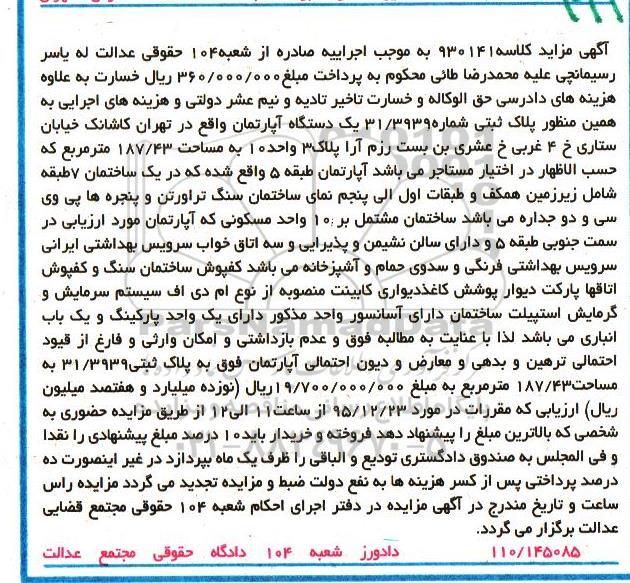 آگهی مزاید کلاسه۹۳۰۱۴۱ به موجب اجراییه صادره از شعبه۱۰۴ حقوقی عدالت له یاسر
رسیمانچی علیه محمدرضا طائی محکوم به پرداخت مبلغ۳۶۰/۰۰۰/۰۰۰ ریال خسارت به علاوه
هزینه های دادرسی حق الوکاله و خسارت تاخیر تادیه و نیم عشر دولتی و هزینه های اجرایی به
همین منظور پلاک ثبتی شماره۳۱/۳۹۳۹ یک دستگاه آپارتمان واقع در تهران کاشانک خیابان
ستاری خ ۴ غربی خ عشری بن بست رزم آرا پلاک۳ واحد۱۰ به مساحت ۱۸۷/۴۳ مترمربع که
حسب الاظهار در اختیار مستاجر می باشد آپارتمان طبقه ۵ واقع شده که در یک ساختمان ۷طبقه
شامل زیرزمین همکف و طبقات اول الی پنجم نمای ساختمان سنگ تراورتن و پنجره ها پی وی
سی و دو جداره می باشد ساختمان مشتمل بر ۱۰ واحد مسکونی که آپارتمان مورد ارزیابی در
سمت جنوبی طبقه ۵ و دارای سالن نشیمن و پذیرایی و سه اتاق خواب سرویس بهداشتی ایرانی
سرویس بهداشتی فرنگی و سدوی حمام و آشپزخانه می باشد کفپوش ساختمان سنگ و کفپوش
اتاقها پارکت دیوار پوشش کاغذدیواری کابینت منصوبه از نوع ام دی اف سیستم سرمایش و
گرمایش استپیلت ساختمان دارای آسانسور واحد مذکور دارای یک واحد پارکینگ و یک باب
انباری می باشد لذا با عنایت به مطالبه فوق و عدم بازداشتی و امکان وارثی و فارغ از قیود
احتمالی ترهین و بدهی و معارض و دیون احتمالی آپارتمان فوق به پلاک ثبتی۳۱/۳۹۳۹ به
مساحت۱۸۷/۴۳ مترمربع به مبلغ ۱۹/۷۰۰/۰۰۰/۰۰۰ریال (نوزده میلیارد و هفتصد میلیون
ریال) ارزیابی که مقررات در مورد ۹۵/۱۲/۲۳ از ساعت۱۱ الی۱۲ از طریق مزایده حضوری به
شخصی که بالاترین مبلغ را پیشنهاد دهد فروخته و خریدار باید۱۰ درصد مبلغ پیشنهادی را نقدا
و فی المجلس به صندوق دادگستری تودیع و الباقی را ظرف یک ماه بپردازد در غیر اینصورت ده
درصد پرداختی پس از کسر هزینه ها به نفع دولت ضبط و مزایده تجدید می گردد مزایده راس
ساعت و تاریخ مندرج در آگهی مزایده در دفتر اجرای احکام شعبه ۱۰۴ حقوقی مجتمع قضایی
عدالت برگزار می گردد.
۱۱۰/۱۴۵۰۸۵ دادورز شعبه ۱۰۴ دادگاه حقوقی مجتمع عدالت
ParsNamadData